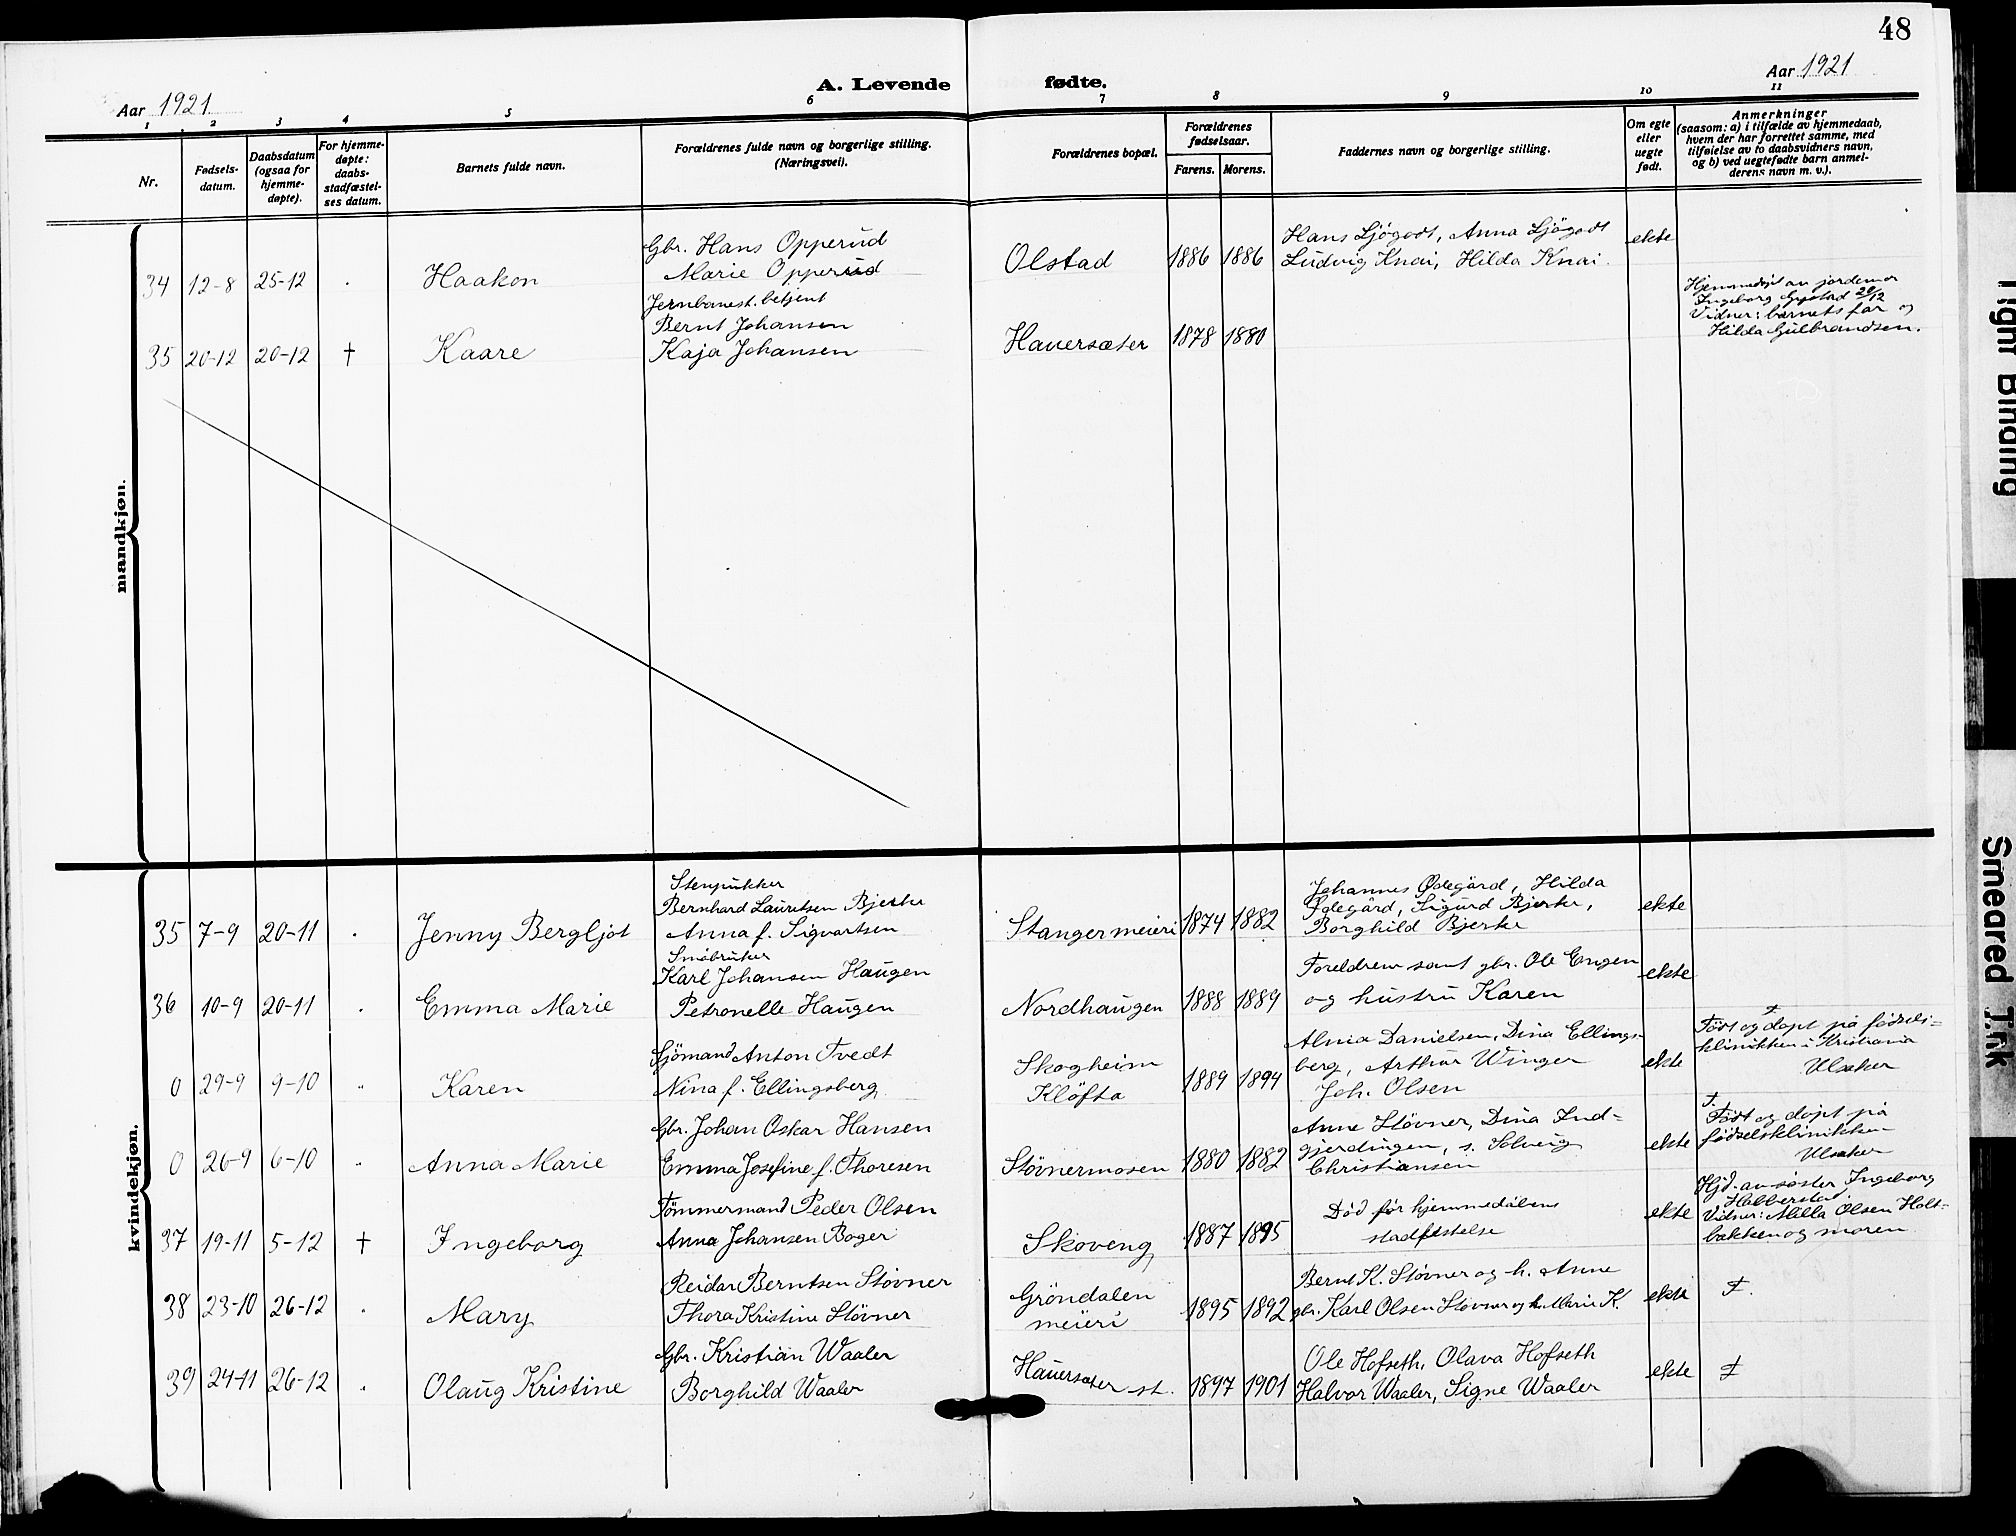 48
Aar 1921
A. Levende fødte.
Aar 1921
1 2 3 4 5 6 7 8 9 10 11
Nr.
Fødsels-
datum.
Daabsdatum
(ogsaa for
hjemme-
døpte).
For hjemme-
døpte:
daabs-
stadfæstel-
ses datum.
Barnets fulde navn.
Forældrenes fulde navn og borgerlige stilling.
(Næringsvei).
Forældrenes bopæl.
Forældrenes
fødselsaar.
Farens. Morens.
Faddernes navn og borgerlige stilling.
Om egte
eller
uegte
født.
Anmerkninger
(saasom: a) i tilfælde av hjemmedaab,
hvem der har forrettet samme, med
tilføielse av to daabsvidners navn,
og b) ved uegtefødte barn anmel-
derens navn m. v.).
mandkjøn.
34 12-8 25-12 . Haakon
Gbr. Hans Opperud
Marie Opperud
Olstad 1886 1886
Hans Ljögodt, Anna Ljögodt
Ludvig Knai, Hilda Knai.
ekte
35 20-12 20-12 † Kaare
Jernbanest. betjent
Bernt Johansen
Kaja Johansen
Hauersæter 1878 1880
Hjemmedöpt av jordemor
Ingeborg 20/12
Vidner: barnets far og
Hilda Gulbrandsen.
kvindekjøn.
35 7-9 20-11 . Jenny Bergljot
Stenpukker
Bernhard Lauritsen Bjerke
Anna f. Sigvartsen
Stanger meieri 1874 1882
Johannes Ødegård, Hilda
Ødegård, Sigurd Bjerke,
Borghild Bjerke
ekte
36 10-9 20-11 . Emma Marie
Småbruker
Karl Johansen Haugen
Petronelle Haugen
Nordhaugen 1888 1889
Foreldrene samt gbr. Ole Engen
og hustru Karen
ekte
0 29-9 9-10 " Karen
Sjömand Anton Tvedt
Nina f. Ellingsberg
Skogheim
Klöfta
1889 1894
Danielsen, Dina Ellings-
berg, Arthur Winger
Joh. Olsen
ekte
Födt og döpt på födsels-
klinikken i Kristiania
Ulsaker
0 26-9 6-10 " Anna Marie
Gbr. Johan Oskar Hansen
Emma Josefine f. Thoresen
Stövnermosen 1880 1882
Anne Stövner, Dina Ind-
gjerdingen, s. Solveig
Christiansen
ekte
Födt og döpt på
födselsklinikken
Ulsaker
37 19-11 5-12 † Ingeborg
Tömmermand Peder Olsen
Anna Johansen Boger
Skoveng 1887 1895
Död för hjemmedåbens
stadfestelse
ekte
Hjd. av söster Ingeborg
Habberstad
Vidner: Milla Olsen Holt-
bakken og moren
38 23-10 26-12 . Mary
Reidar Berntsen Stövner
Thora Kristine Stövner
Gröndalen
meieri
1895 1892
Bernt K. Stövner og h. Anne
gbr. Karl Olsen Stövner og h. Marie K.
ekte
F.
39 24-11 26-12 . Olaug Kristine
Gbr. Kristian Waaler
Borghild Waaler
Hauersæter st. 1897 1901
Ole Hofseth, Olava Hofseth
Halvor Waaler, Signe Waaler
ekte
F
Tight Binding
Smeared Ink